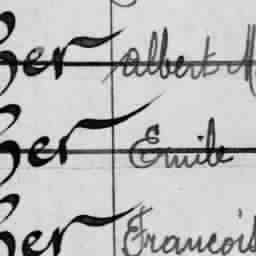 her Albert M
her Emile
her Francois